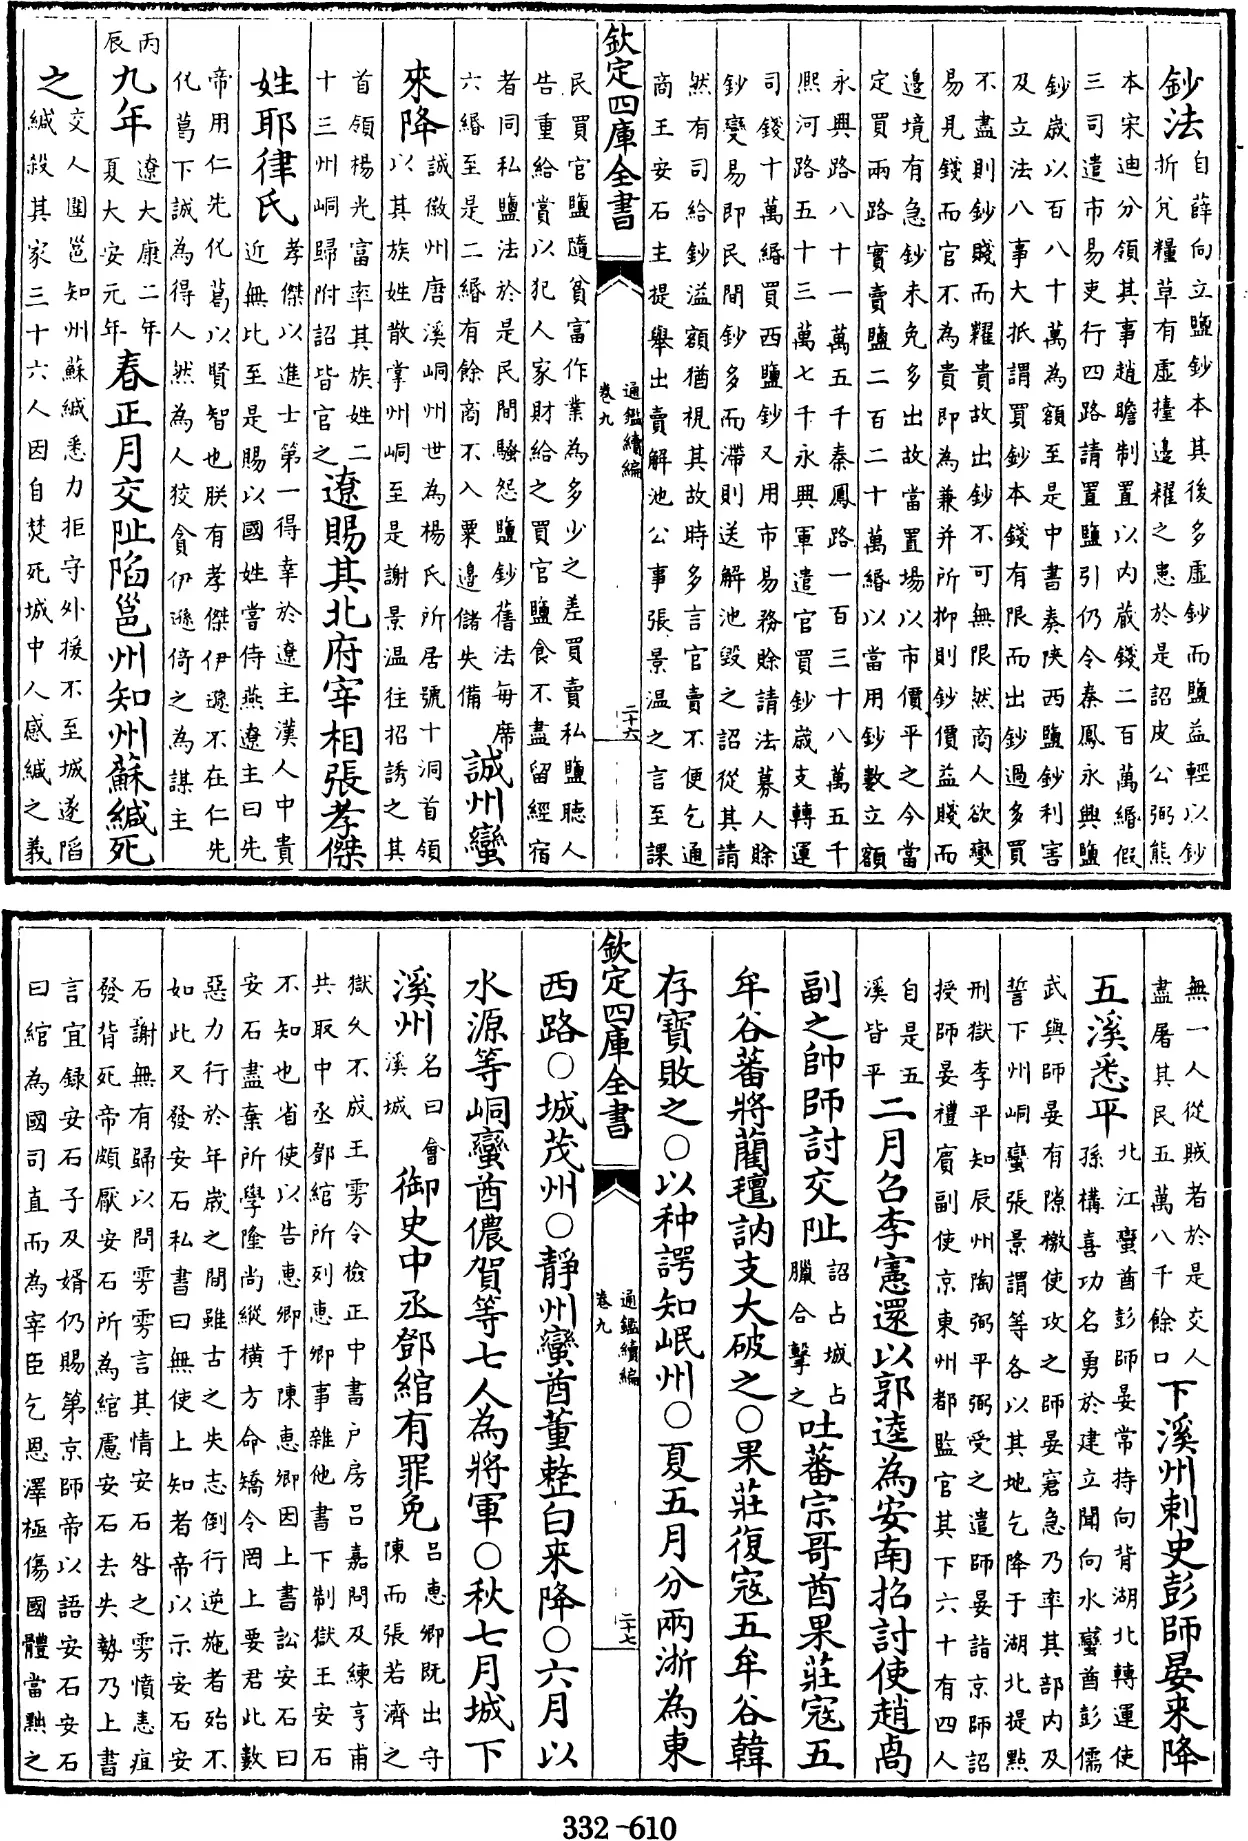 鈔法自薛向立鹽鈔本其後多虛鈔而鹽益輕以鈔
折兊糧草有虛擡邊糴之患於是詔皮公弼熊
本宋迪分領其事趙瞻制置以内藏錢二百萬緡假
三司遣市易吏行四路請置鹽引仍令秦鳳永興鹽
鈔歲以百八十萬為額至是中書奏陜西鹽鈔利害
及立法八事大抵謂買鈔本錢有限而出鈔過多買
不盡則鈔賤而糴貴故出鈔不可無限然商人欲變
易見錢而官不為貴即為兼并所抑則鈔價益賤而
邊境有急鈔未免多出故當置場以市價平之今當
定買兩路實賣鹽二百二十萬緡以當用鈔數立額
永興路八十一萬五千秦鳳路一百三十八萬五千
熙河路五十三萬七千永興軍遣官買鈔歲支轉運
司錢十萬緡買西鹽鈔又用市易務賒請法募人賒
鈔變易即民間鈔多而滯則送解池毀之詔從其請
然有司給鈔溢額猶視其故時多言官賣不便乞通
商王安石主提舉出賣解池公事張景温之言至課
欽定四庫全書
通鑑續編
卷九
二十六
民買官鹽隨貧富作業為多少之差買賣私鹽聽人
告重給賞以犯人家財給之買官鹽食不盡留經宿
者同私鹽法於是民間騷怨鹽鈔舊法每席
六緡至是二緡有餘商不入粟邊儲失備誠州蠻
來降誠徽州唐溪峒州世為楊氏所居號十洞首領
以其族姓散掌州峒至是謝景温往招誘之其
首領楊光富率其族姓二
十三州峒歸附詔皆官之遼賜其北府宰相張孝傑
姓耶律氏孝傑以進士第一得幸於遼主漢人中貴
近無比至是賜以國姓嘗侍燕遼主曰先
帝用仁先化葛以賢智也朕有孝傑伊遜不在仁先
化葛下誠為得人然為人狡貪伊遜倚之為謀主
丙辰九年遼大康二年
夏大安元年春正月交阯陷邕州知州蘇緘死
之交人圍邕知州蘇緘悉力拒守外援不至城遂陷
緘殺其家三十六人因自焚死城中人感緘之義
無一人從賊者於是交人
盡屠其民五萬八千餘口下溪州刺史彭師晏来降
五溪悉平北江蠻酋彭師晏常持向背湖北轉運使
孫構喜功名勇於建立聞向水蠻酋彭儒
武與師晏有隙檄使攻之師晏窘急乃率其部内及
誓下州峒蠻張景謂等各以其地乞降于湖北提點
刑獄李平知辰州陶弼平弼受之遣師晏詣京師詔
授師晏禮賓副使京東州都監官其下六十有四人
自是五
溪皆平二月召李憲還以郭逵為安南招討使趙卨
副之帥師討交阯詔占城占
臘合擊之吐蕃宗哥酋果莊寇五
牟谷蕃將藺氊訥支大破之○果莊復寇五牟谷韓
存寶敗之○以种諤知岷州○夏五月分兩浙為東
欽定四庫全書
通鑑續編
卷九
二十七
西路○城茂州○靜州蠻酋董整白来降○六月以
水源等峒蠻酋儂賀等七人為將軍○秋七月城下
溪州名曰會
溪城御史中丞鄧綰有罪免吕惠卿既出守
陳而張若濟之
獄久不成王雱令檢正中書户房吕嘉問及練亨甫
共取中丞鄧綰所列惠卿事雜他書下制獄王安石
不知也省使以告惠卿于陳惠卿因上書訟安石曰
安石盡棄所學隆尚縱橫方命矯令罔上要君此數
惡力行於年歲之間雖古之失志倒行逆施者殆不
如此又發安石私書曰無使上知者帝以示安石安
石謝無有歸以問雱雱言其情安石咎之雱憤恚疽
發背死帝頗厭安石所為綰慮安石去失勢乃上書
言宜録安石子及婿仍賜第京師帝以語安石安石
曰綰為國司直而為宰臣乞恩澤極傷國體當黜之
332-610